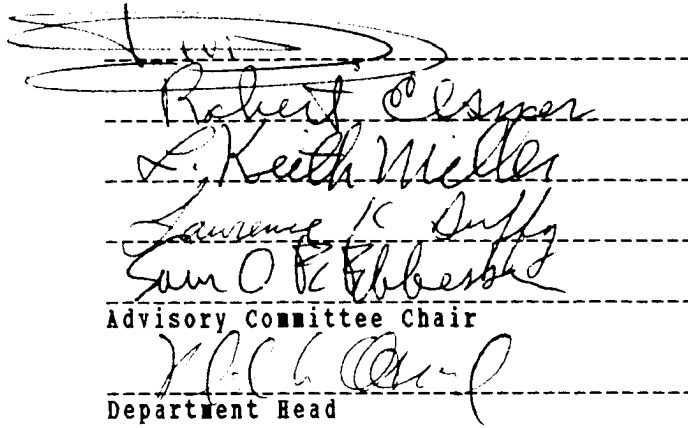 Robert Elsner
L. Keith Miller
Lawrence K Duffy
Sven O E Ebbesson
Advisory Committee Chair
Department Head